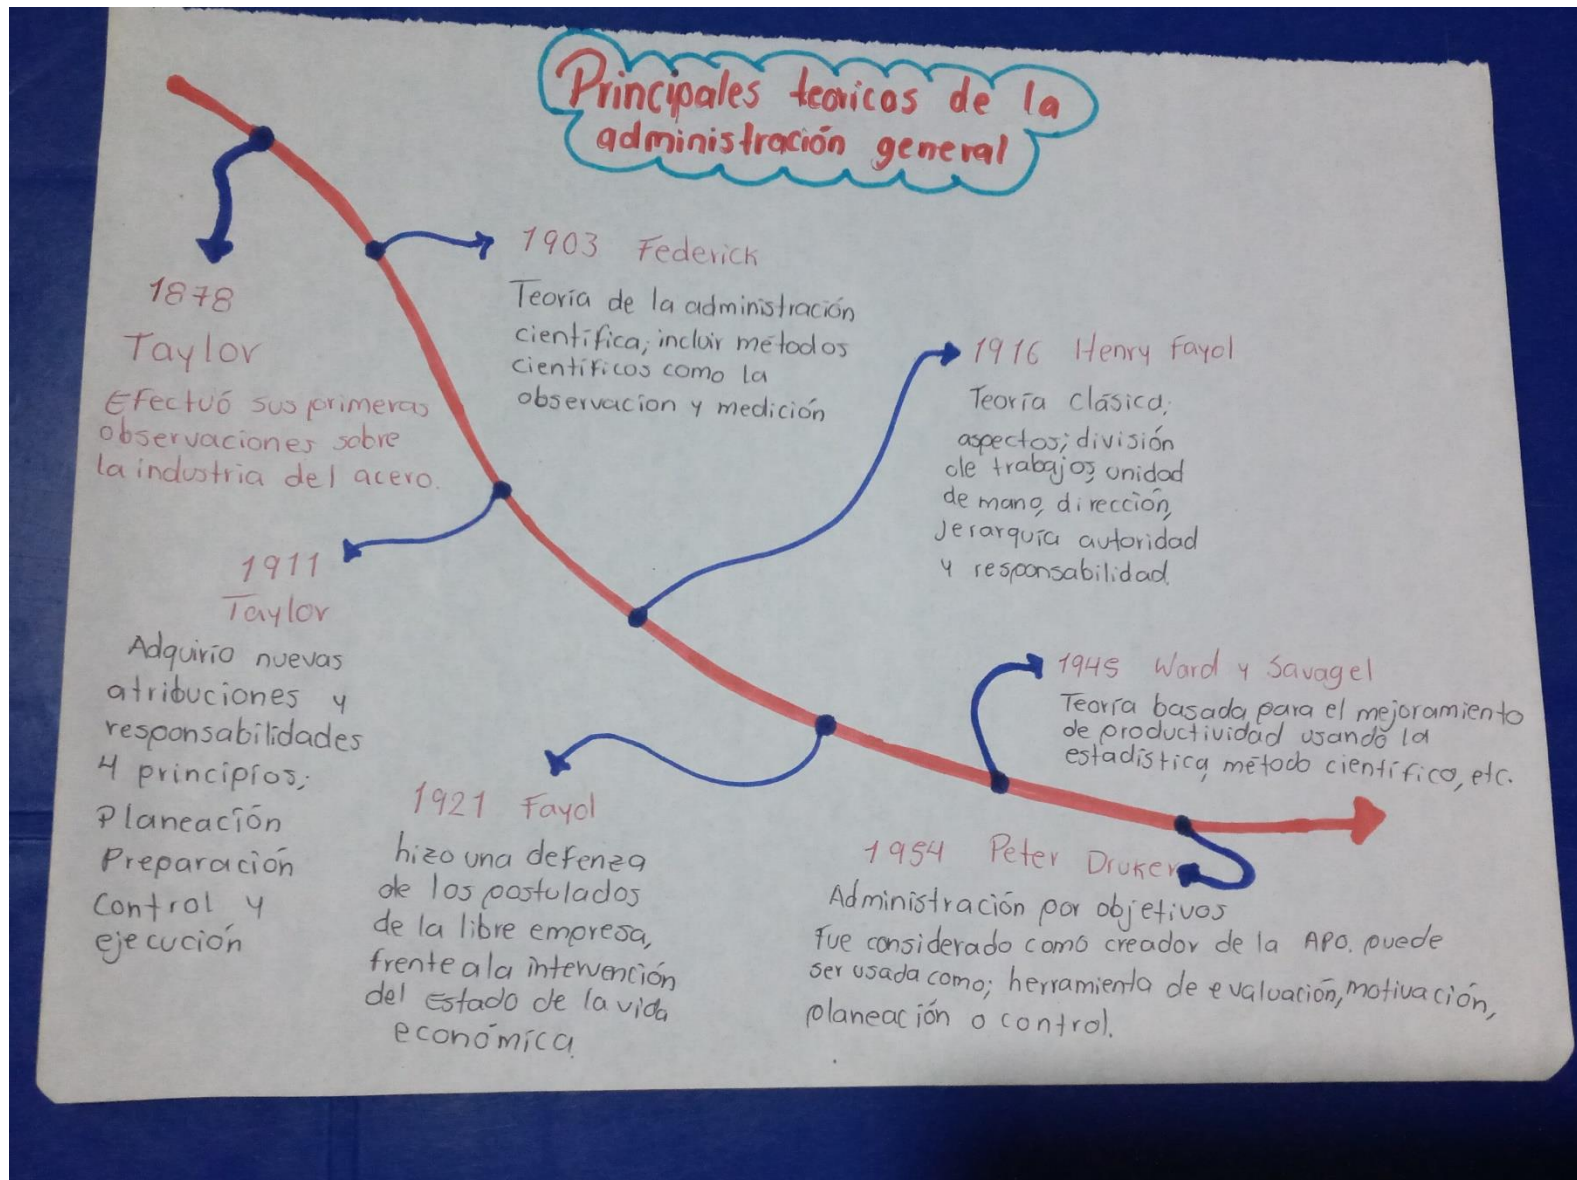 Principales teoricos de la
administración general
1878
Taylor
Efectuó sus primeras
observaciones sobre
la industria del acero.
1903 Federick
Teoría de la administración
científica; incluir métodos
científicos como la
observacion y medición
1911
Taylor
Adquirío nuevas
atribuciones y
responsabilidades
4 principíos;
Planeación
Preparación
Control y
ejecución
1916 Henry Fayol
Teoría Clásica;
aspectos; división
de trabajos, unidad
de mano, dirección,
Jerarquía autoridad
y responsabilidad.
1921 Fayol
hizo una defenza
de los postulados
de la libre empresa,
frente a la intervención
del Estado de la vida
económica.
1945 Ward y Savagel
Teoría basada para el mejoramiento
de productividad usando la
estadística, método científico, etc.
1954 Peter Druker
Administración por objetivos
Fue considerado como creador de la APO. puede
ser usada como; herramienta de evaluación, motivación,
planeación o control.